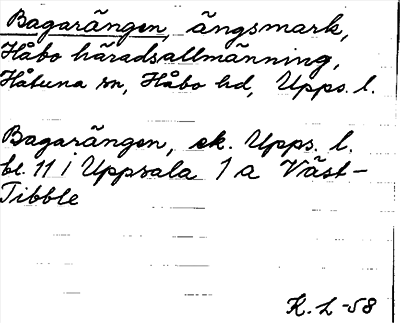 Bagarängen, ängsmark,
Håbo häradsallmänning,
Håtuna sn, Håbo hd, Upps. l.
Bagarängen, ek. Upps. l.
bl. 11 i Uppsala 1 a Väst-
Tibble
K. L-58